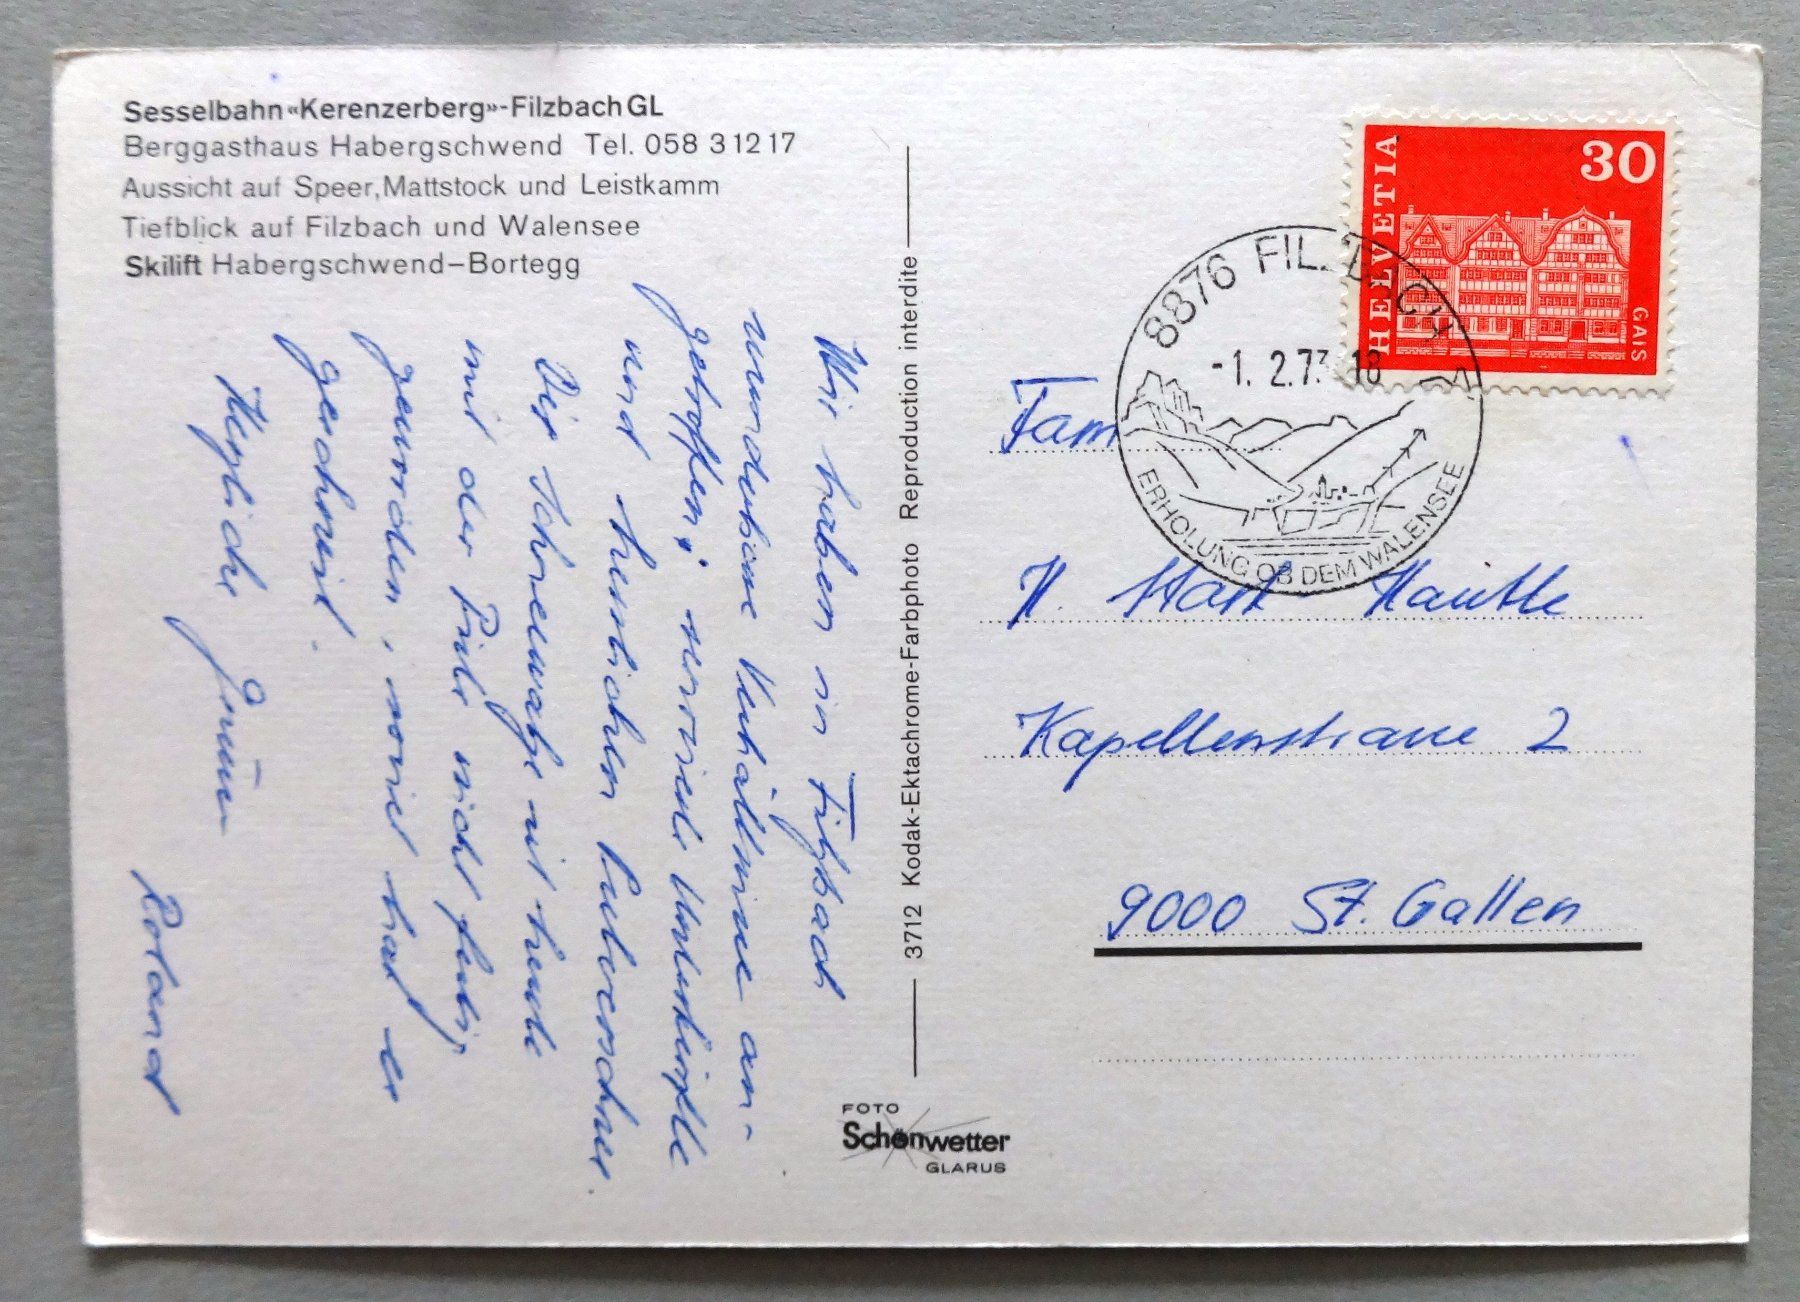 Sesselbahn «Kerenzerberg»-Filzbach GL
Berggasthaus Habergschwend Tel. 058 3 12 17
Aussicht auf Speer, Mattstock und Leistkamm
Tiefblick auf Filzbach und Walensee
Skilift Habergschwend–Bortegg
Wir haben in Filzbach
wunderbare Verhältnisse an-
getroffen; Unterkünfte
und herrlichen Pulverschnee.
Die Schneewalze ist heute
mit der Piste nicht fertig
geworden, soviel hat es
geschneit.
Herzliche Grüsse
Roland
3712 Kodak-Ektachrome-Farbphoto Reproduction interdite
FOTO
Schönwetter
GLARUS
HELVETIA
30
GAIS
8876 FILZBACH
-1. 2.73 18
ERHOLUNG OB DEM WALENSEE
Fam
H. Hautle
Kapellenstrasse 2
9000 St. Gallen